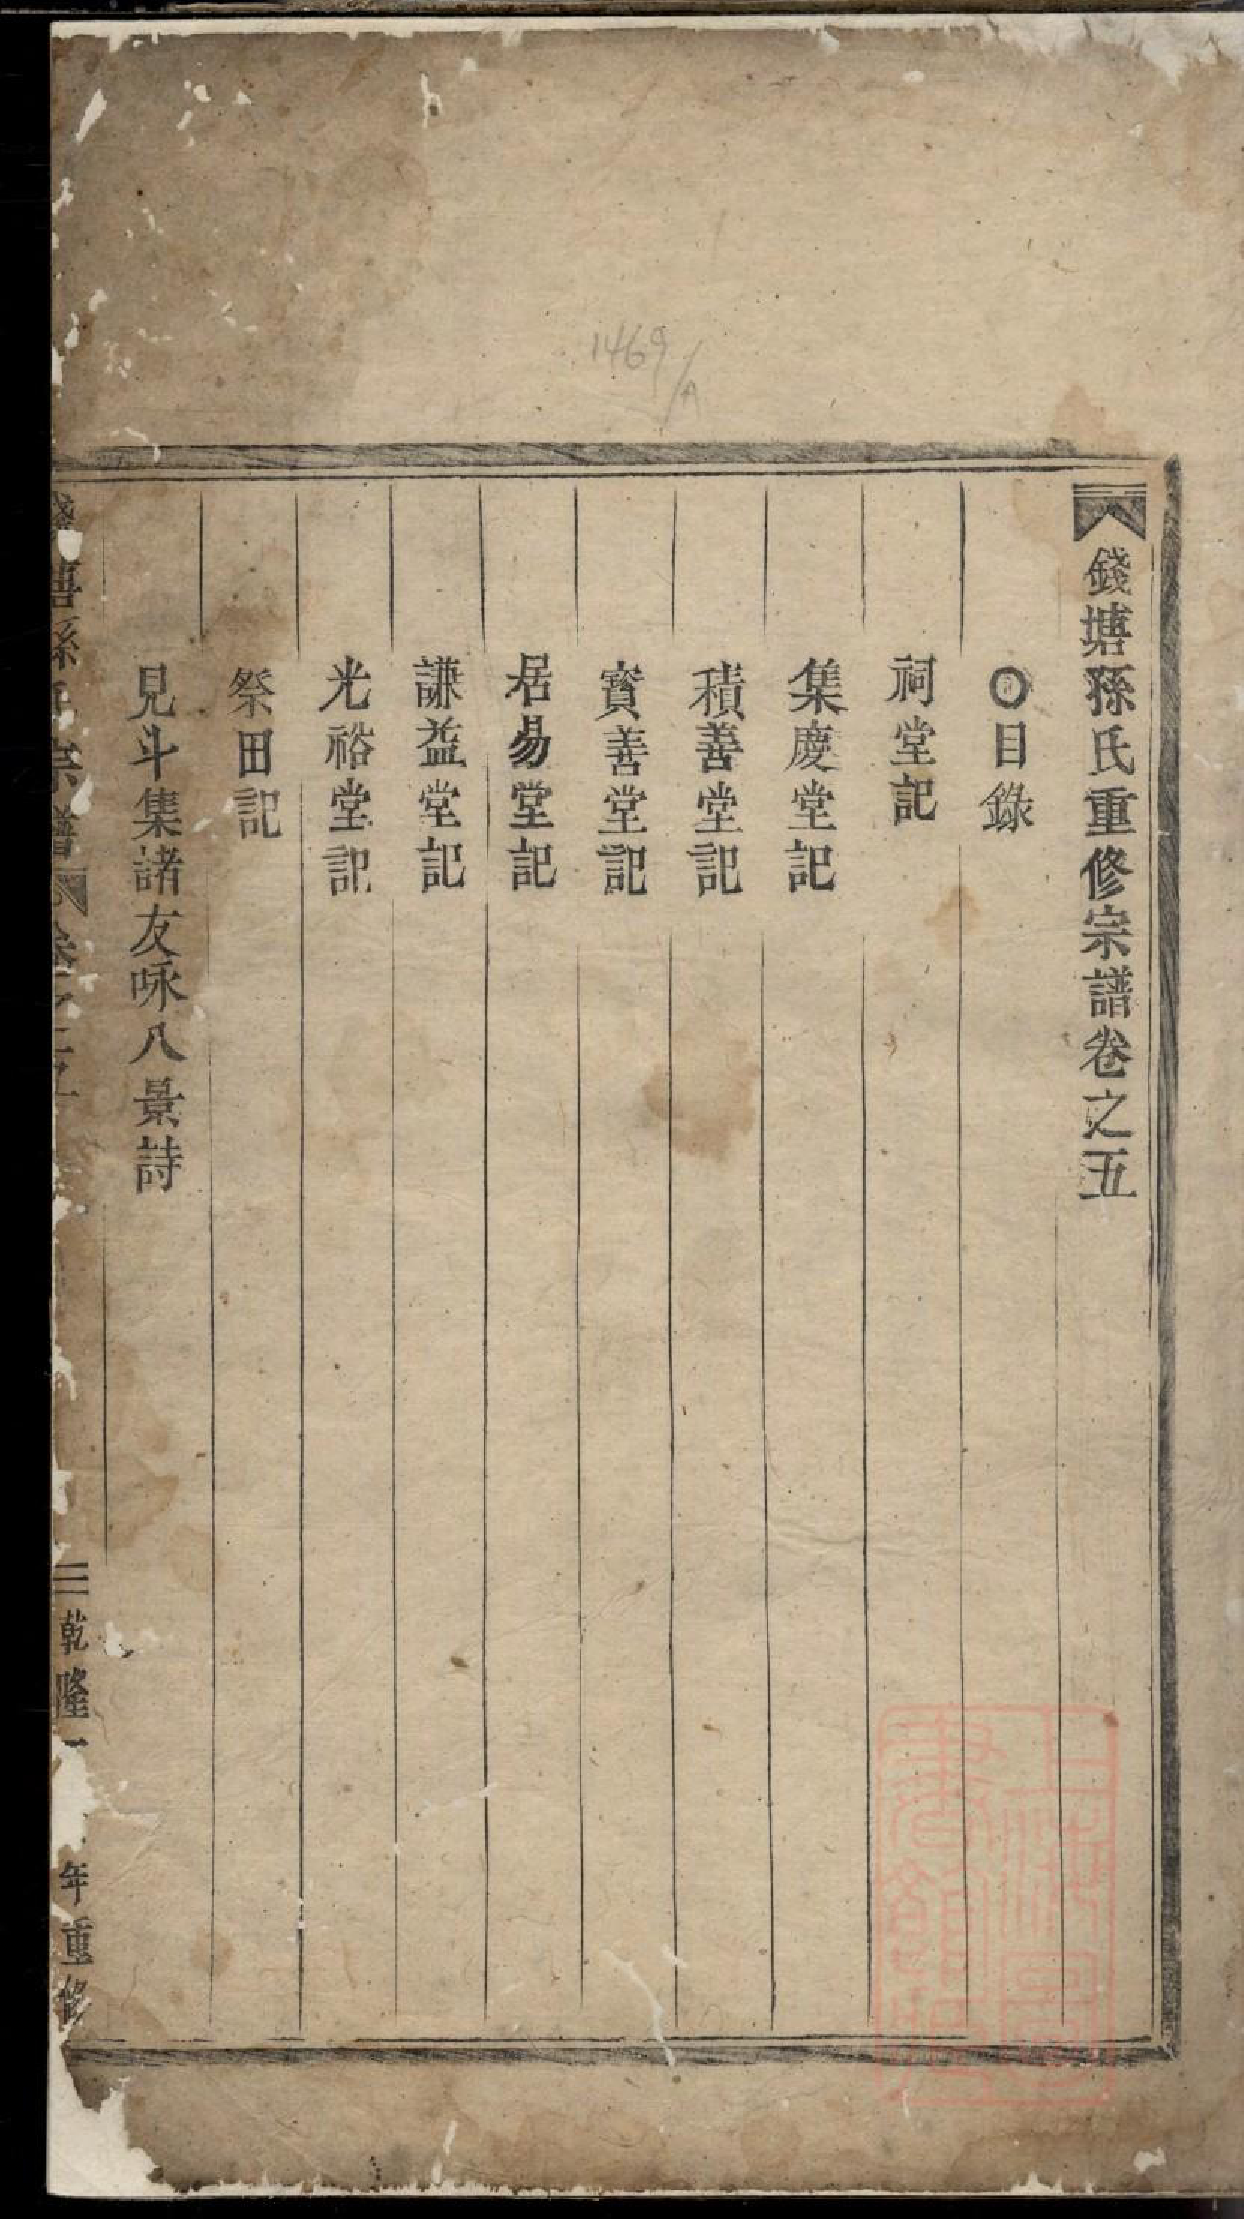 錢塘孫氏重修宗譜卷之五
〇目錄
祠堂記
集慶堂記
積善堂記
寳善堂記
居易堂記
謙益堂記
光裕堂記
祭田記
見斗集諸友咏八景詩
錢塘孫氏宗譜 卷之五 乾隆 年重修
1469/A